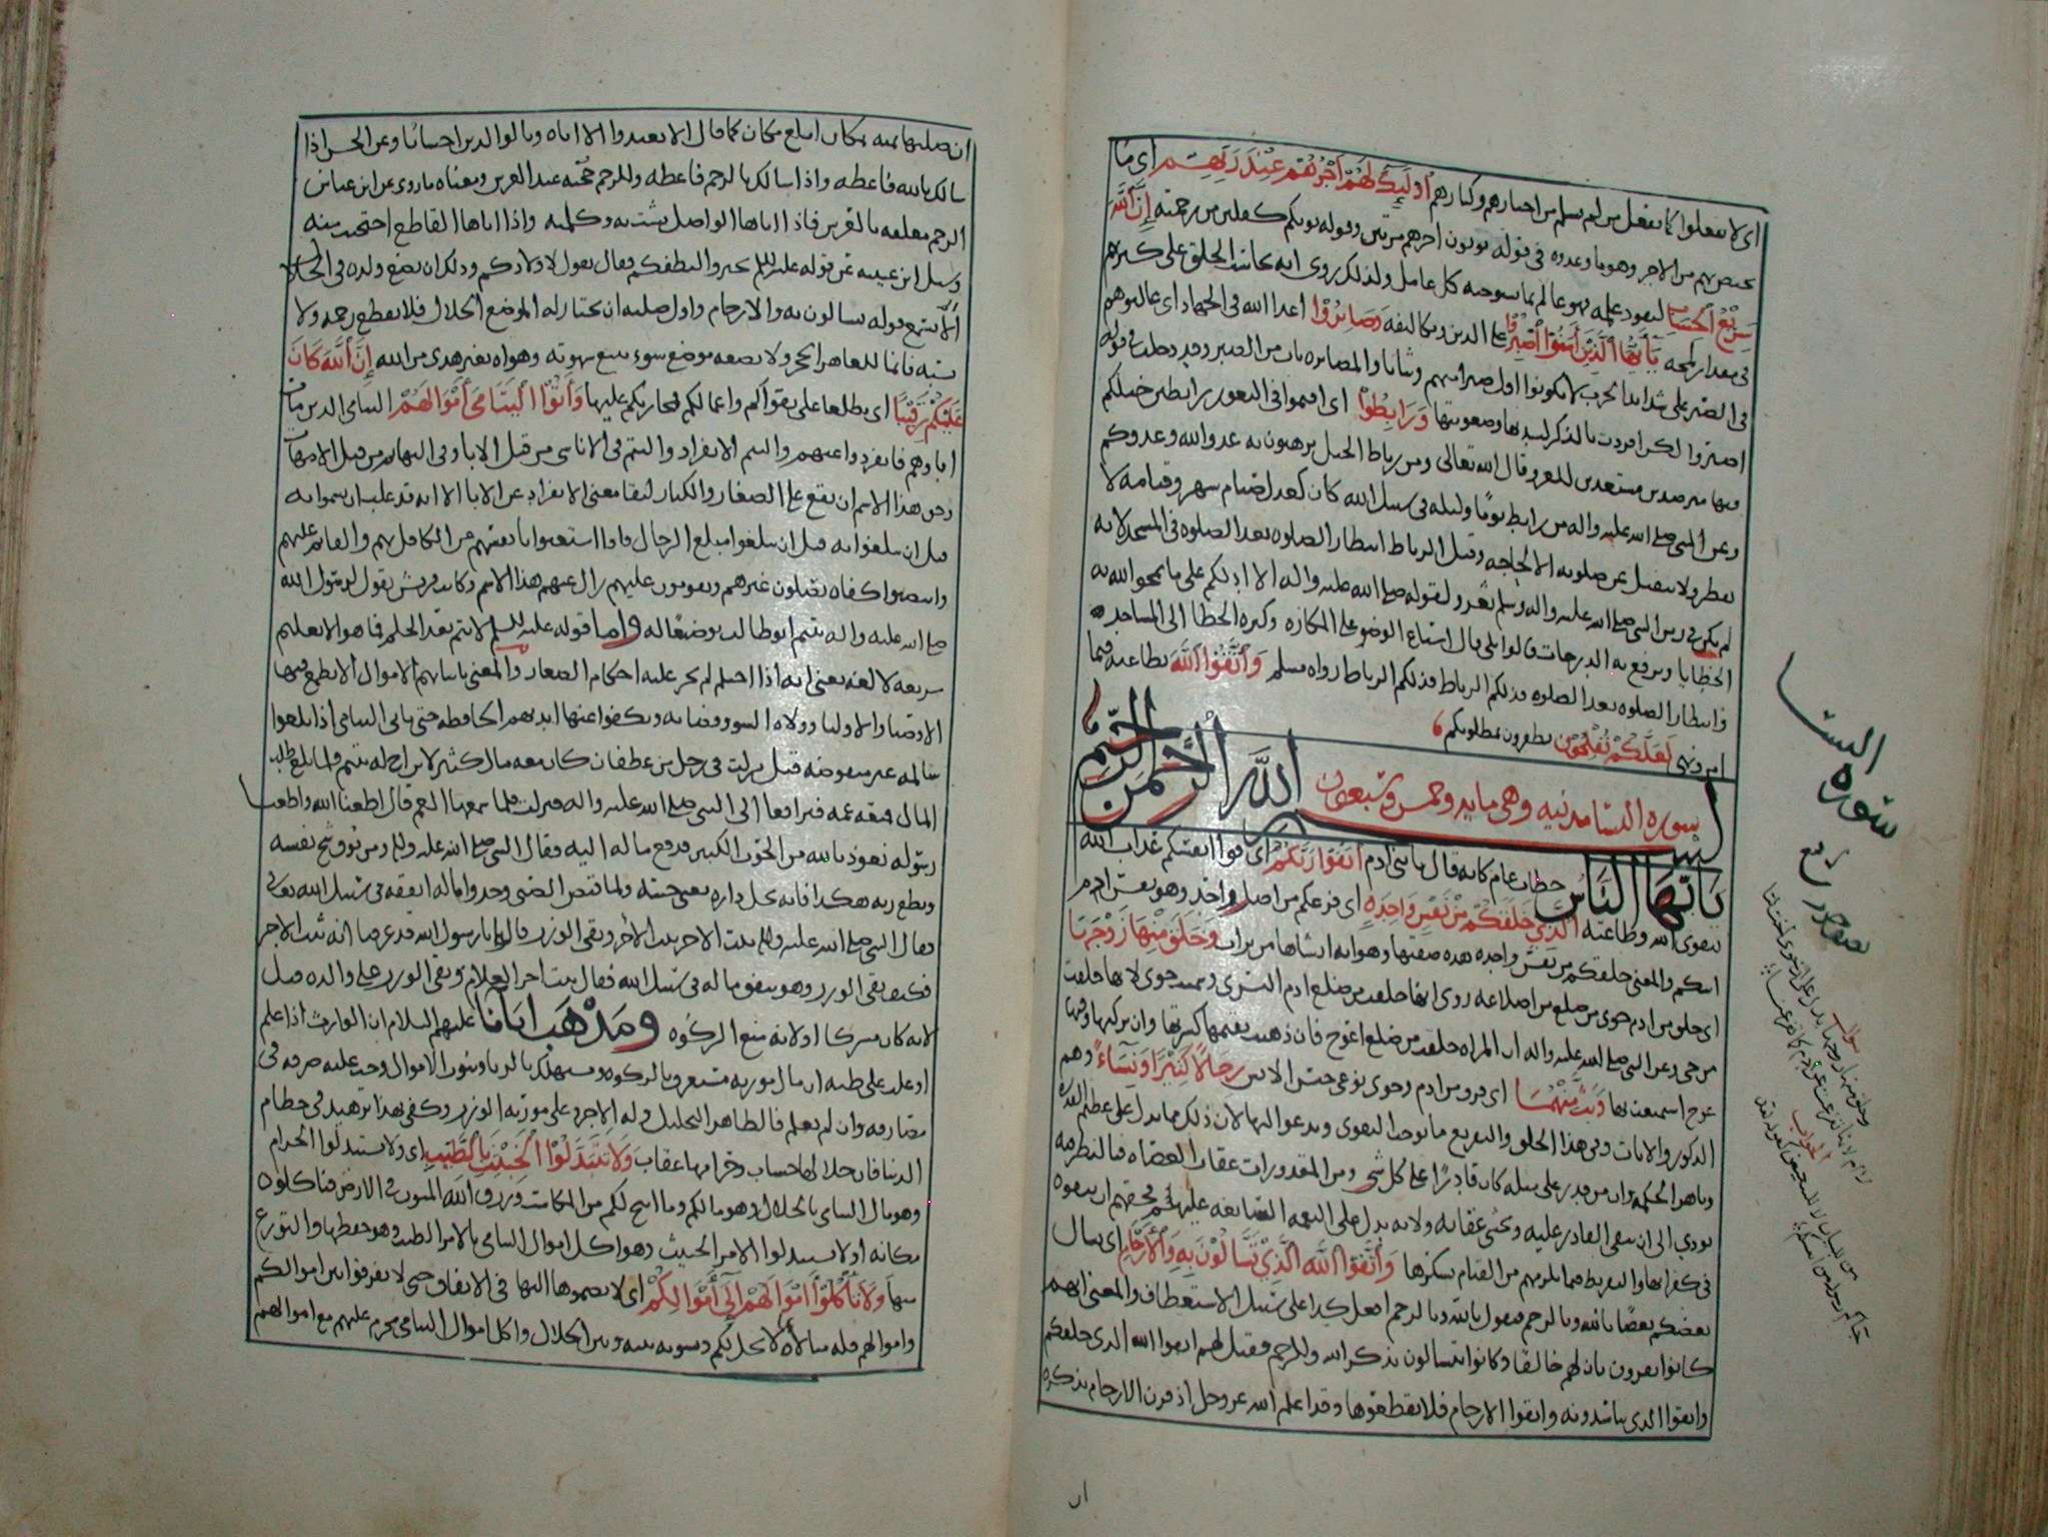 اى لا تفعلوا كما يفعل من لم يسلم من احبارهم وكبارهم اولئك لهم اجرهم عند ربهم اى ما
يختص بهم من الاجر وهو ما وعدوه فى قوله يوتون اجرهم مرتين وقوله يوتكم كفلين من رحمته ان الله
سريع الحساب لنفوذ علمه فهو عالم بما يستوجبه كل عامل ولذلك روى انه يحاسب الخلق على كثرتهم
فى مقدار لمحة يا ايها الذين امنوا اصبروا على الدين وتكاليفه وصابروا اعدا الله فى الجهاد اى غالبوهم
فى الصبر على شدايد الحرب لا تكونوا اقل صبرا منهم وثباتا والمصابره باب من الصبر
اصبروا لكن افردت بالذكر لشدتها وصعوبتها ورابطوا اى اقيموا فى الثغور رابطين خيلكم
فيها مترصدين مستعدين للغزو قال الله تعالى ومن رباط الخيل ترهبون به عدو الله وعدوكم
وعن النبى صلى الله عليه واله من رابط يوما وليلة فى سبيل الله كان كعدل صيام شهر وقيامه لا
يفطر ولا ينفتل عن صلوته الا لحاجة وقيل الرباط انتظار الصلوة بعد الصلوة فى المسجد لانه
لم يكن فى زمن النبى صلى الله عليه واله وسلم ثغر ولقوله صلى الله عليه واله الا ادلكم على ما يمحو الله به
الخطايا ويرفع به الدرجات قالوا بلى قال اسباغ الوضو على المكاره وكثرة الخطا الى المساجد
وانتظار الصلوة بعد الصلوة فذلكم الرباط فذلكم الرباط رواه مسلم واتقوا الله بطاعته فيما
امر ونهى لعلكم تفلحون تظفرون بمطلوبكم
سورة النسا مدنيه وهى مايه وخمس وسبعون
بسم الله الرحمن الرحيم
يا ايها الناس خطاب عام كانه قال يا بنى ادم اتقوا ربكم اى قوا انفسكم عذاب الله
بتقوى الله وطاعته الذى خلقكم من نفس واحدة اى فرعكم من اصل واحد وهو نفس ادم
ابيكم والمعنى خلقكم من نفس واحده هذه صفتها وهو انه انشاها من تراب وخلق منها زوجها
اى خلق من ادم حوى من ضلع من اضلاعه روى انها خلقت من ضلع ادم اليسرى وسميت حوى لانها خلقت
من حى وعن النبى صلى الله عليه واله ان المراه خلقت من ضلع اعوج فان ذهبت تقيمها كسرتها وان تركتها وفيها
عوج استمتعت بها وبث منهما اى فرق من ادم وحوى نوعى جنس الانس رجالا كثيرا ونساء وهم
الذكور والاناث وفى هذا الخلق والتفريع ما يوجب التقوى ويدعو اليها لان ذلك مما يدل على عظم القدره
وباهر الحكمة وان من قدر على مثله كان قادرا على كل شى ومن المقدورات عقاب العصاة فالنظر فيه
يودى الى ان يتقى القادر عليه ويخشى عقابه ولانه يدل على النعمه السابغه عليهم فحقهم ان يتقوه
فى كفرانها والتفريط فيما يلزمهم من القيام بشكرها واتقوا الله الذى تسالون به والارحام اى يسال
بعضكم بعضا بالله وبالرحم فيقول بالله وبالرحم افعل كذا على سبيل الاستعطاف والمعنى انهم
كانوا يقرون بان لهم خالقا وكانوا يتسالون بذكر الله والرحم فقيل لهم اتقوا الله الذى خلقكم
واتقوا الذى تناشدونه واتقوا الارحام فلا تقطعوها وقد اعلم الله عز وجل اذ قرن الارحام بذكره
ان
سورة النسا
ربع
سوال
الجواب
ان صلتها منه بمكان ابلغ مكان كما قال الا تعبدوا الا اياه وبالوالدين احسانا وعن الحسن اذا
سالك بالله فاعطه واذا سالك بالرحم فاعطه وللرحم حجنة عند العرش ومعناه ما روى عن ابن عباس
الرحم معلقه بالعرش فاذا اتاها الواصل بشت به وكلمته واذا اتاها القاطع احتجبت منه
وسيل ابن عيينه عن قوله عليه السلم تخيروا لنطفكم فقال يقول لاولادكم وذلك ان يضع ولده فى الحلال
الم تسمع قوله تسالون به والارحام واول صلته ان يختار له الموضع الحلال فلا يقطع رحمه ولا
نسبه فانما للعاهر الحجر ولا يضعه موضع سوء يتبع شهوته وهواه بغير هدى من الله ان الله كان
عليكم رقيبا اى مطلعا على تقواكم واعمالكم فيجازيكم عليها واتوا اليتامى اموالهم اليتامى الذين مات
اباوهم فانفردوا عنهم واليتم الانفراد واليتم فى الاناسى من قبل الابا وفى البهايم من قبل الامهات
وحق هذا الاسم ان يقع على الصغار والكبار لبقا معنى الانفراد عن الابا الا انه قد غلب ان يسموا به
قبل ان يبلغوا مبلغ الرجال فاذا استغنوا بانفسهم عن الكافل بهم والقايم عليهم
وانتصبوا كفاة يكفلون غيرهم ويقومون عليهم زال عنهم هذا الاسم وكانت قريش يقول لرسول الله
صلى الله عليه واله يتيم ابو طالب توضيعا له واما قوله عليه السلم لا يتم بعد الحلم فما هو الا تعليم
شريعة لا لغة يعنى انه اذا احتلم لم تجر عليه احكام الصغار والمعنى باتيانهم الاموال الا يطمع فيها
الاوصيا والاوليا وولاة السوء وقضاته ويكفوا عنها ايديهم الخاطفه حتى تاتى اليتامى اذا بلغوا
سالمة غير منقوضه قيل نزلت فى رجل من غطفان كان معه مال كثير لابن اخ له يتيم فلما بلغ طلب
المال فمنعه عمه فترافعا الى النبى صلى الله عليه واله فنزلت فلما سمعها العم قال اطعنا الله واطعنا
رسوله نعوذ بالله من الحوب الكبير فدفع ماله اليه فقال النبى صلى الله عليه واله ومن يوق شح نفسه
ويطع ربه هكذا فانه يحل داره يعنى جنته ولما قبض الصبى وجدوا ماله انفقه فى سبيل الله تعالى
فقال النبى صلى الله عليه واله ثبت الاجر ثبت الاجر وبقى الوزر قالوا يا رسول الله قد عرفنا انه ثبت الاجر
فكيف بقى الوزر وهو ينفق ماله فى سبيل الله فقال ثبت اجر الغلام وبقى الوزر على والده قيل
لانه كان مشركا او لانه منع الزكوة ومذهب ابائنا عليهم السلام ان الوارث اذا علم
او غلب على ظنه ان مال مورثه
مصارفه وان لم يعلم فالظاهر التحليل وله الاجر وعلى مورثه الوزر وكفى بهذا تزهيد فى حطام
الدنيا فان حلالها حساب وحرامها عقاب ولا تتبدلوا الخبيث بالطيب اى ولا تستبدلوا الحرام
وهو مال اليتامى بالحلال وهو مالكم وما ابيح لكم من المكاسب ورزق الله المبثوث فى الارض فتاكلوه
مكانه او لا تستبدلوا الامر الخبيث وهو اكل اموال اليتامى بالامر الطيب وهو حفظها والتورع
منها ولا تاكلوا اموالهم الى اموالكم اى لا تضموها اليها فى الانفاق حتى لا تفرقوا بين اموالكم
واموالهم قلة مبالاة لا يحل لكم وتسوية بينه وبين الحلال واكل اموال اليتامى محرم عليهم مع اموالهم